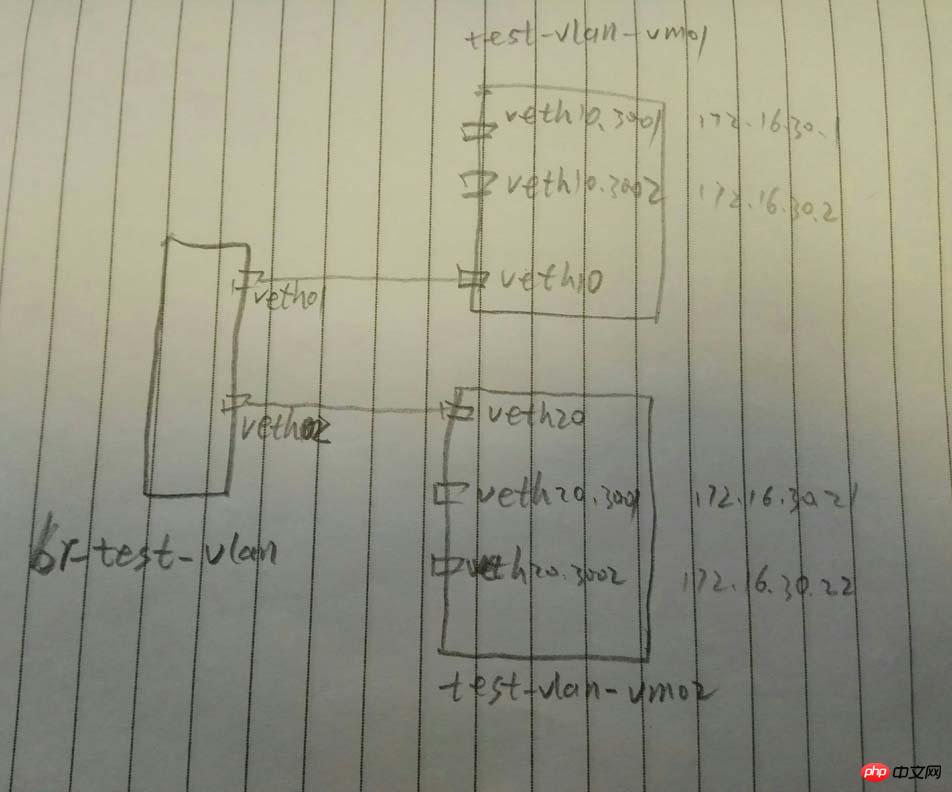 test-vlan-vm01
veth10.3001 172.16.30.1
veth10.3002 172.16.30.2
veth10
veth01
veth20
veth02
veth20.3001 172.16.30.21
br-test-vlan
veth20.3002 172.16.30.22
test-vlan-vm02
php 中文网